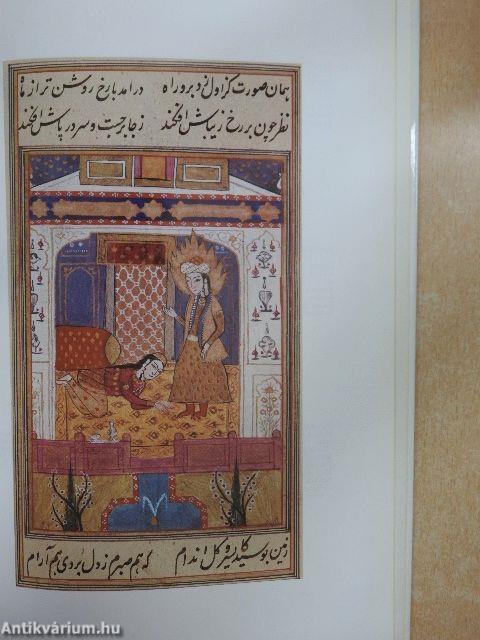 همان صورت کز اول زد برو راه درآمد با رخ روشن تر از ماه
نظر چون بر رخ زیباش افکند ز جا برجست و سر در پاش افکند
زمین بوسید کای سرو گل اندام که هم صبرم ز دل بردی هم آرام
Antikvárium.hu